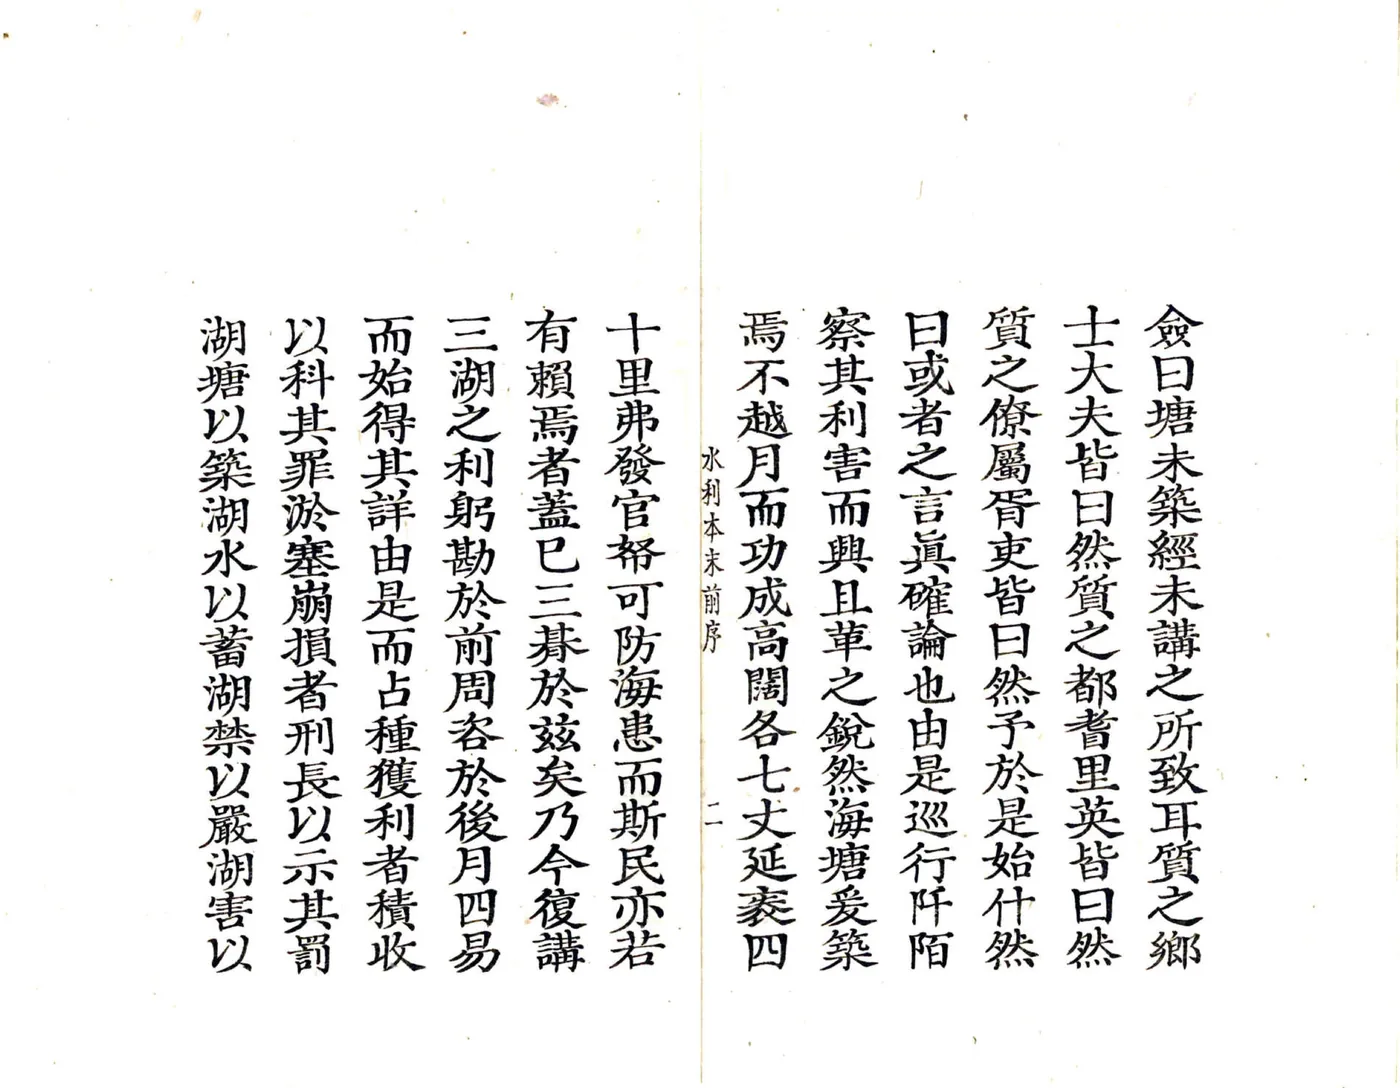 僉曰塘未築經未講之所致耳質之鄉
士大夫皆曰然質之都耆里英皆曰然
質之僚屬胥吏皆曰然予於是始什然
曰或者之言眞確論也由是巡行阡陌
察其利害而興且革之銳然海塘爰築
焉不越月而功成高闊各七丈延袤四
水利本末前序 二
十里弗發官帑可防海患而斯民亦若
有賴焉者蓋已三朞於茲矣乃今復講
三湖之利躬勘於前周咨於後月四易
而始得其詳由是而占種獲利者積收
以科其罪淤塞崩損者刑長以示其罰
湖塘以築湖水以蓄湖禁以嚴湖害以